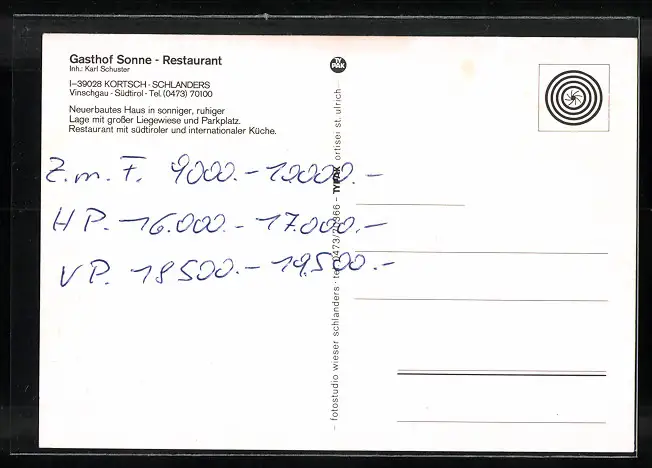 Gasthof Sonne - Restaurant
Inh.: Karl Schuster
I-39028 KORTSCH - SCHLANDERS
Vinschgau - Südtirol - Tel. (0473) 70100
Neuerbautes Haus in sonniger, ruhiger
Lage mit großer Liegewiese und Parkplatz.
Restaurant mit südtiroler und internationaler Küche.
Z.m.F. 9000.- 10000.-
HP. -16.000.- -17.000.-
VP. 18500.- -19.500.-
TY
PAK
- fotostudio wieser schlanders · tel. 0473/ 366 - TYPAK ortisei st. ulrich -